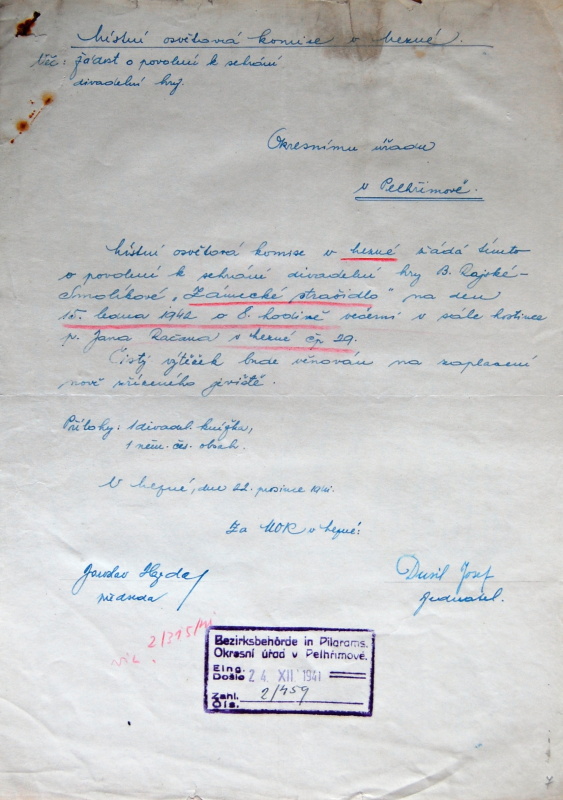 Místní osvětová komise v Lezné.
Věc: Žádost o povolení k sehrání
divadelní hry.
Okresnímu úřadu
v Pelhřimově.
Místní osvětová komise v Lezné žádá tímto
o povolení k sehrání divadelní hry B. Rajské-
Smolíkové „Zámecké strašidlo" na den
15. ledna 1942 o 8. hodině večerní v sále hostince
p. Jana Račana v Lezné čp 29.
Čistý výtěžek bude věnován na zaplacení
nově zřízeného jeviště.
Přílohy: 1 divadel. knížka,
1 něm. čes. obsah.
V Lezné, dne 22. prosince 1941.
Za MOK v Lezné:
Jaroslav
předseda
Dusil Josef
jednatel.
2/315/41
Bezirksbehörde in Pilgrams.
Okresní úřad v Pelhřimově.
Eing.
Došlo 24. XII. 1941
Zahl.
Čís. 2/459